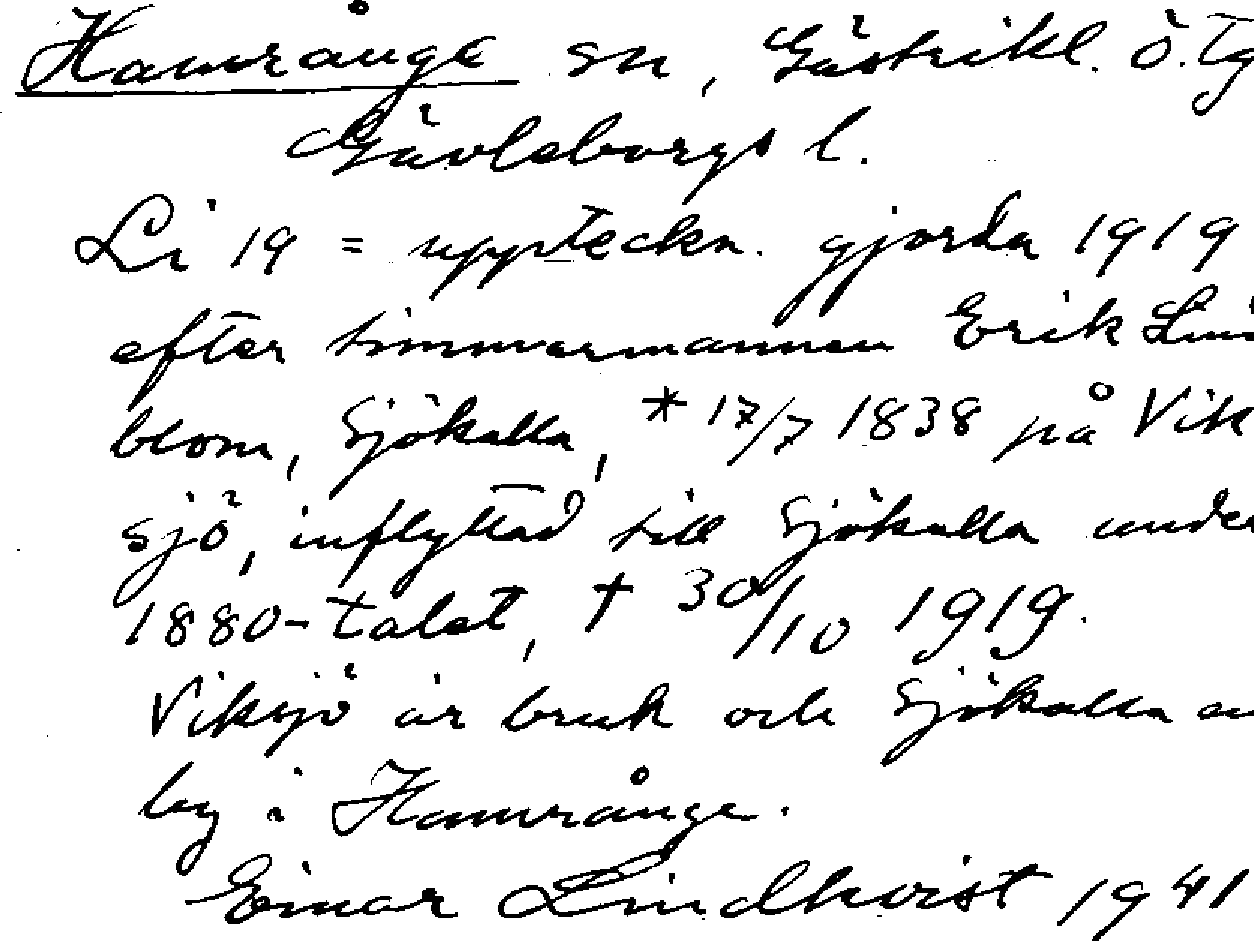 Hamrånge sn, Gästrikl. Ö. Tg
Gävleborgs l.
Li 19 = uppteckn. gjorda 1919
efter timmermannen Erik Lin
blom, Sjökalla, * 17/7 1838 på Vik
sjö, inflyttad till Sjökalla unde
1880-talet, † 30/10 1919.
Viksjö är bruk och Sjökalla en
by i Hamrånge.
Einar Lindkvist 1941